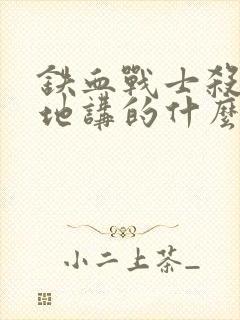 鉄血戰士殺
地講的什麼
小二上茶_